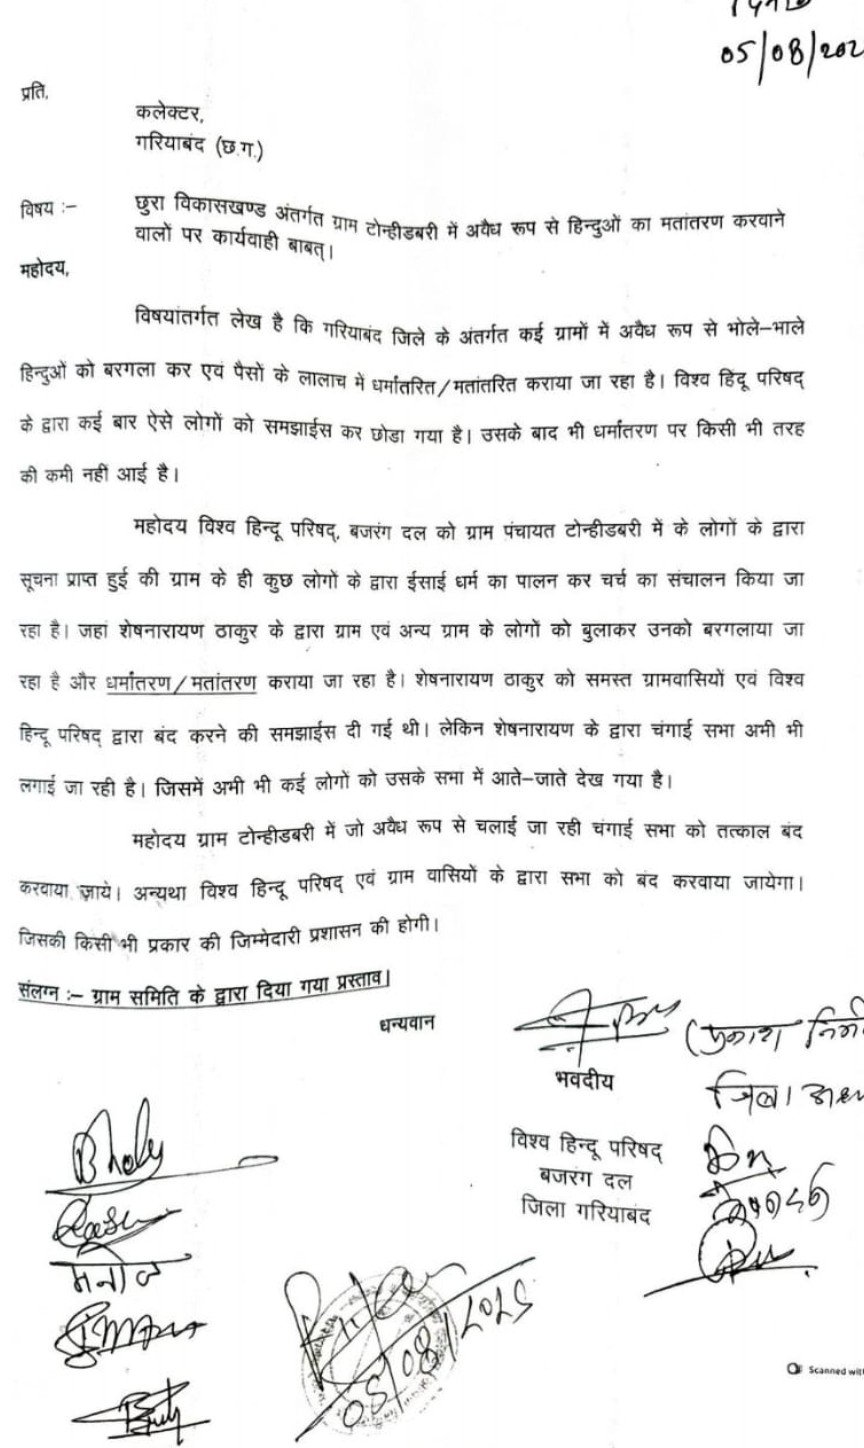 05/08/202
प्रति,
कलेक्टर,
गरियाबंद (छ.ग.)
विषय :– छुरा विकासखण्ड अंतर्गत ग्राम टोन्हीडबरी में अवैध रूप से हिन्दुओं का मतांतरण करवाने
वालों पर कार्यवाही बाबत्।
महोदय,
विषयांतर्गत लेख है कि गरियाबंद जिले के अंतर्गत कई ग्रामों में अवैध रूप से भोले–भाले
हिन्दुओं को बरगला कर एवं पैसों के लालाच में धर्मांतरित/मतांतरित कराया जा रहा है। विश्व हिदू परिषद्
के द्वारा कई बार ऐसे लोगों को समझाईस कर छोडा गया है। उसके बाद भी धर्मांतरण पर किसी भी तरह
की कमी नहीं आई है।
महोदय विश्व हिन्दू परिषद्, बजरंग दल को ग्राम पंचायत टोन्हीडबरी में के लोगों के द्वारा
सूचना प्राप्त हुई की ग्राम के ही कुछ लोगों के द्वारा ईसाई धर्म का पालन कर चर्च का संचालन किया जा
रहा है। जहां शेषनारायण ठाकुर के द्वारा ग्राम एवं अन्य ग्राम के लोगों को बुलाकर उनको बरगलाया जा
रहा है और धर्मांतरण/मतांतरण कराया जा रहा है। शेषनारायण ठाकुर को समस्त ग्रामवासियों एवं विश्व
हिन्दू परिषद् द्वारा बंद करने की समझाईस दी गई थी। लेकिन शेषनारायण के द्वारा चंगाई सभा अभी भी
लगाई जा रही है। जिसमें अभी भी कई लोगों को उसके सभा में आते–जाते देख गया है।
महोदय ग्राम टोन्हीडबरी में जो अवैध रूप से चलाई जा रही चंगाई सभा को तत्काल बंद
करवाया जाये। अन्यथा विश्व हिन्दू परिषद् एवं ग्राम वासियों के द्वारा सभा को बंद करवाया जायेगा।
जिसकी किसी भी प्रकार की जिम्मेदारी प्रशासन की होगी।
संलग्न :– ग्राम समिति के द्वारा दिया गया प्रस्ताव।
धन्यवान
भवदीय
जिला
विश्व हिन्दू परिषद्
बजरंग दल
जिला गरियाबंद
मनोज
05/08/2025
Scanned with